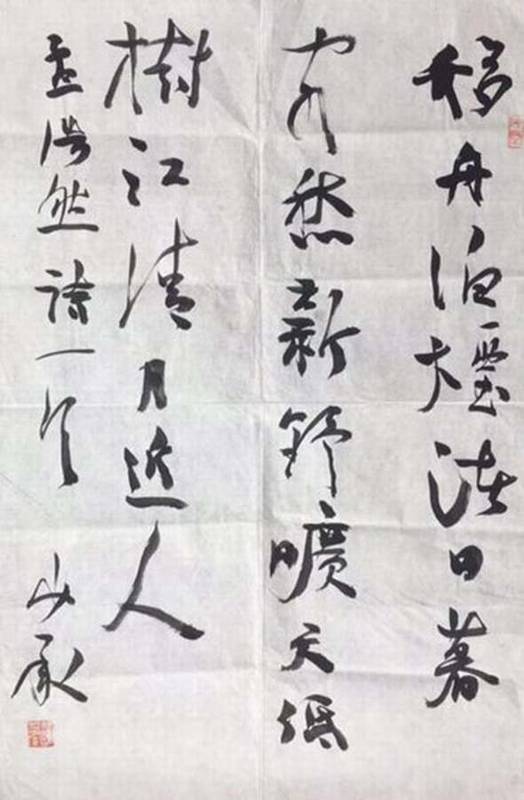 移舟泊煙渚日暮
客愁新野曠天低
樹江清月近人
孟浩然詩一首